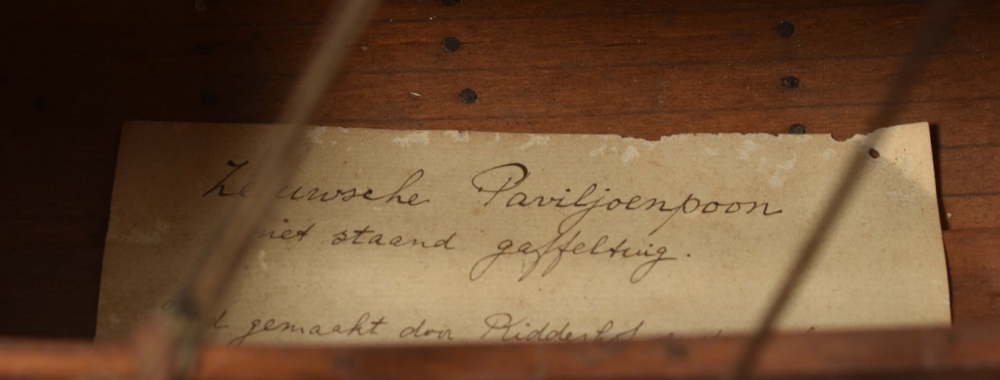 Zeeuwsche Paviljoenpoon
met staand gaffeltuig.
gemaakt door Ridderhof